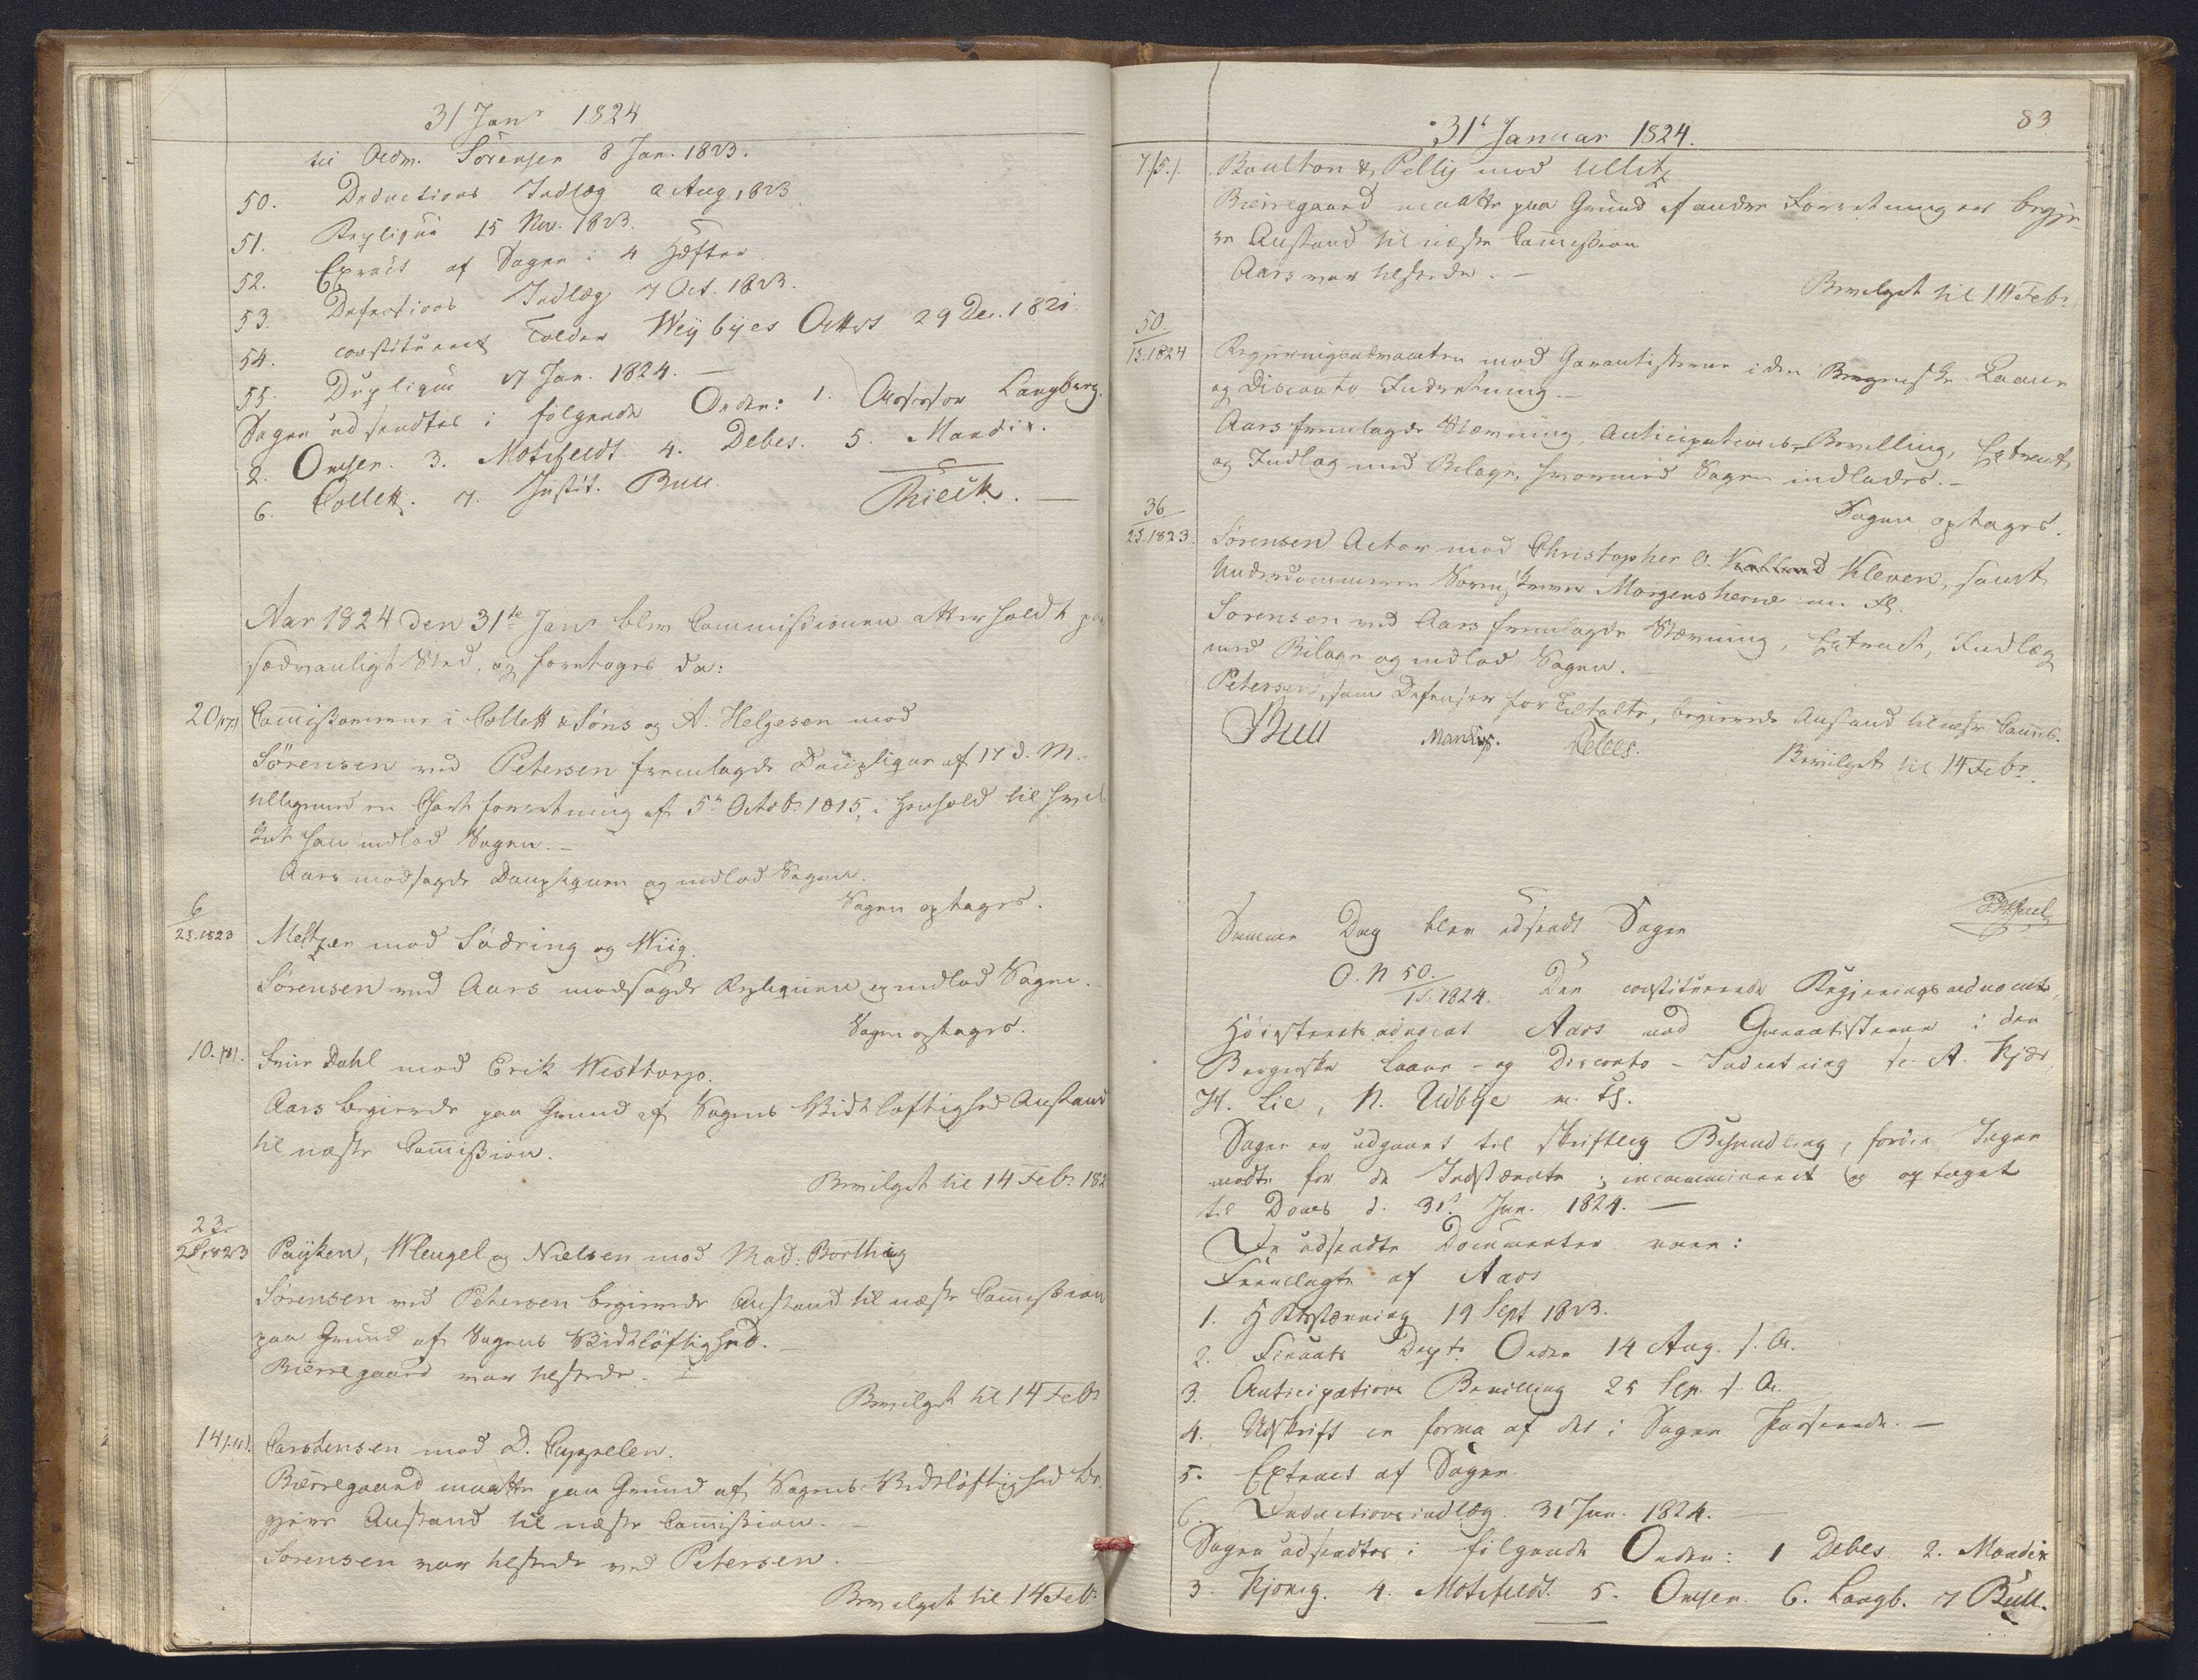 31 Jan. 1824
til Adm. Sörensen 8 Jan. 1823.
50. Deductions Indlæg 2 Aug. 1823
51. Repliqué 15 Nov. 1823.
52. Extract af Sagen i 4 Hefter.
53. Defensions Indlæg 7 Oct. 1823.
54. constitueret Tolder Weybyes Attest 29 Dec. 1821.
55. Dupliqué 17 Jan. 1824. —
Sagen udsendtes i følgende Orden: 1. Assessor Langberg.
2. Omsen. 3. Motzfeldt. 4. Debes. 5. Mandix.
6. Collett. 7. Justit. Bull.
Aar 1824 den 31te Janr blev Commissionen atter holdt paa
sædvanligt Sted, og foretoges da:
20/17/ Commissionerne i Collett & Søns og A. Helgesen mod
Sörensen ved Petersen fremlagde Doupliqve af 17 d. M.
tilligemed en forretning af 5te Octob. 1815, i Henhold til hvil
ket han indlod Sagen. —
Aars modsagde Doupliquen og indlod Sagen.
Sagen optages.
6/25.1823 Meltzer mod Södring og Wiig.
Sörensen ved Aars modsagde Repliquen og indlod Sagen. —
Sagen optages.
10./18/. Dahl mod Erik Westtorp.
Aars begierede paa Grund af Sagens Vidtløftighed Anstand
til næste Commission.
Bevilget til 14 Febr. 182
23./28.1823 Payken, Kleugel og Nielsen mod Mad: Borthig
Sörensen ved Petersen begierede Anstand til næste Commission
paa Grund af Sagens Vidtløftighed. —
Bierregaard var tilstede.
Bevilget til 14 Febr
14/11/. Carstensen mod D. Cappelen.
Bierregaard maatte paa Grund af Sagens Vidtløftighed be-
gjere Anstand til næste Commission. —
Sörensen var tilstede ved Petersen.
Bevilget til 14 Febr.
83
31te Januar 1824.
7/15./ Boulton & Pelly mod Ullitz
Bierregaard maatte paa Grund af andre Forretninger begje-
re Anstand til næste Commission
Aars var tilstede. —
Bevilget til 14 Febr.
50./15.1824 Regjeringsadvocaten mod Garantisterne i den Bergenske Laane
og Disconto Indretning. —
Aars fremlagde Stævning, Anticipations-Bevilling, Extract
og Indlæg med Bilage, hvormed Sagen indlades. —
Sagen optages.
36/25.1823. Sörensen Actor mod Christopher O. Kleven, samt
Underdommeren Sorenskriver Morgenstierne m. Fl.
Sorensen ved Aars fremlagde Stævning, Extract, Indlæg
med Bilage og indlod Sagen.
Petersen, som Defensor for Tiltalte, begierede Anstand til næste Commis.
Bevilget til 14 Febr.
Bull Mandix. Debes.
Samme Dag blev udsendt Sagen
O. N 50./15.1824. Den constituerede Regjeringsadvocat,
Höiesteretsadvocat Aars mod Garantisterne i den
Bergenske Laane- og Disconto-Indretning A. Kjær,
H. Lie, N. Udbye m. fl.
Sagen er udgaaet til skriftlig Behandling, fordi Ingen
mødte for de Indstævnte; incamineret og optaget
til Doms d. 31te Jan. 1824. —
De udsendte Documenter vare:
Fremlagte af Aars
1. H Rtsstævning 19 Sept 1823.
2. Finants Dept. Orden 14 Aug. s. A.
3. Anticipations Bevilling 25 Sep. s. A.
4. Udskrift in forma af det i Sagen Passerede. —
5. Extract af Sagen.
6. Deductionsindlæg. 31 Jan. 1824. —
Sagen udsendtes i følgende Orden: 1 Debes 2. Mandix
3. Kjönig. 4. Motzfeldt. 5. Omsen. 6. Langb. 7 Bull.